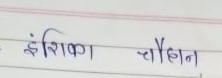 इंशिका चौहान